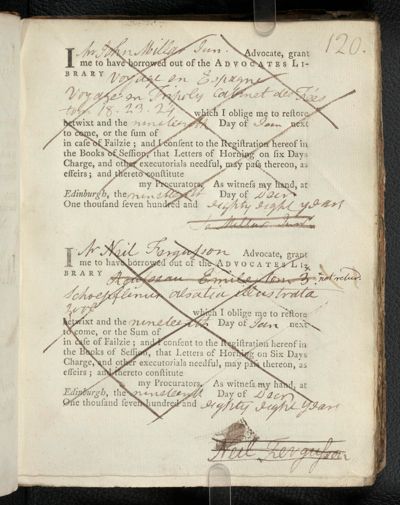 120.
I Mr John Millar Jun. Advocate, grant
me to have borrowed out of the ADVOCATES LI-
BRARY Voyage en Espagne
Voyage en Tripoly Cabinet des Fées
18. 23. 24 which I oblige me to restore
betwixt and the nineteenth Day of Jan next
to come, or the sum of
in case of Failzie; and I consent to the Registration hereof in
the Books of Session, that Letters of Horning on six Days
Charge, and other executorials needful, may pass thereon, as
effeirs; and thereto constitute
my Procurators. As witness my hand, at
Edinburgh, the nineteenth Day of Decr
One thousand seven hundred and eighty eight years
Jo Millar Junr
I Mr Neil Fergusson Advocate, grant
me to have borrowed out of the ADVOCATES LI-
BRARY Rousseau Emile tom 3. not return
Schoepflinus alsatia illustrata
which I oblige me to restore
betwixt and the nineteenth Day of Jan next
to come, or the Sum of
in case of Failzie; and I consent to the Registration hereof in
the Books of Session, that Letters of Horning on Six Days
Charge, and other executorials needful, may pass thereon, as
effeirs; and thereto constitute
my Procurators. As witness my hand, at
Edinburgh, the nineteenth Day of Decr
One thousand seven hundred and eighty eight years
Neil Fergusson